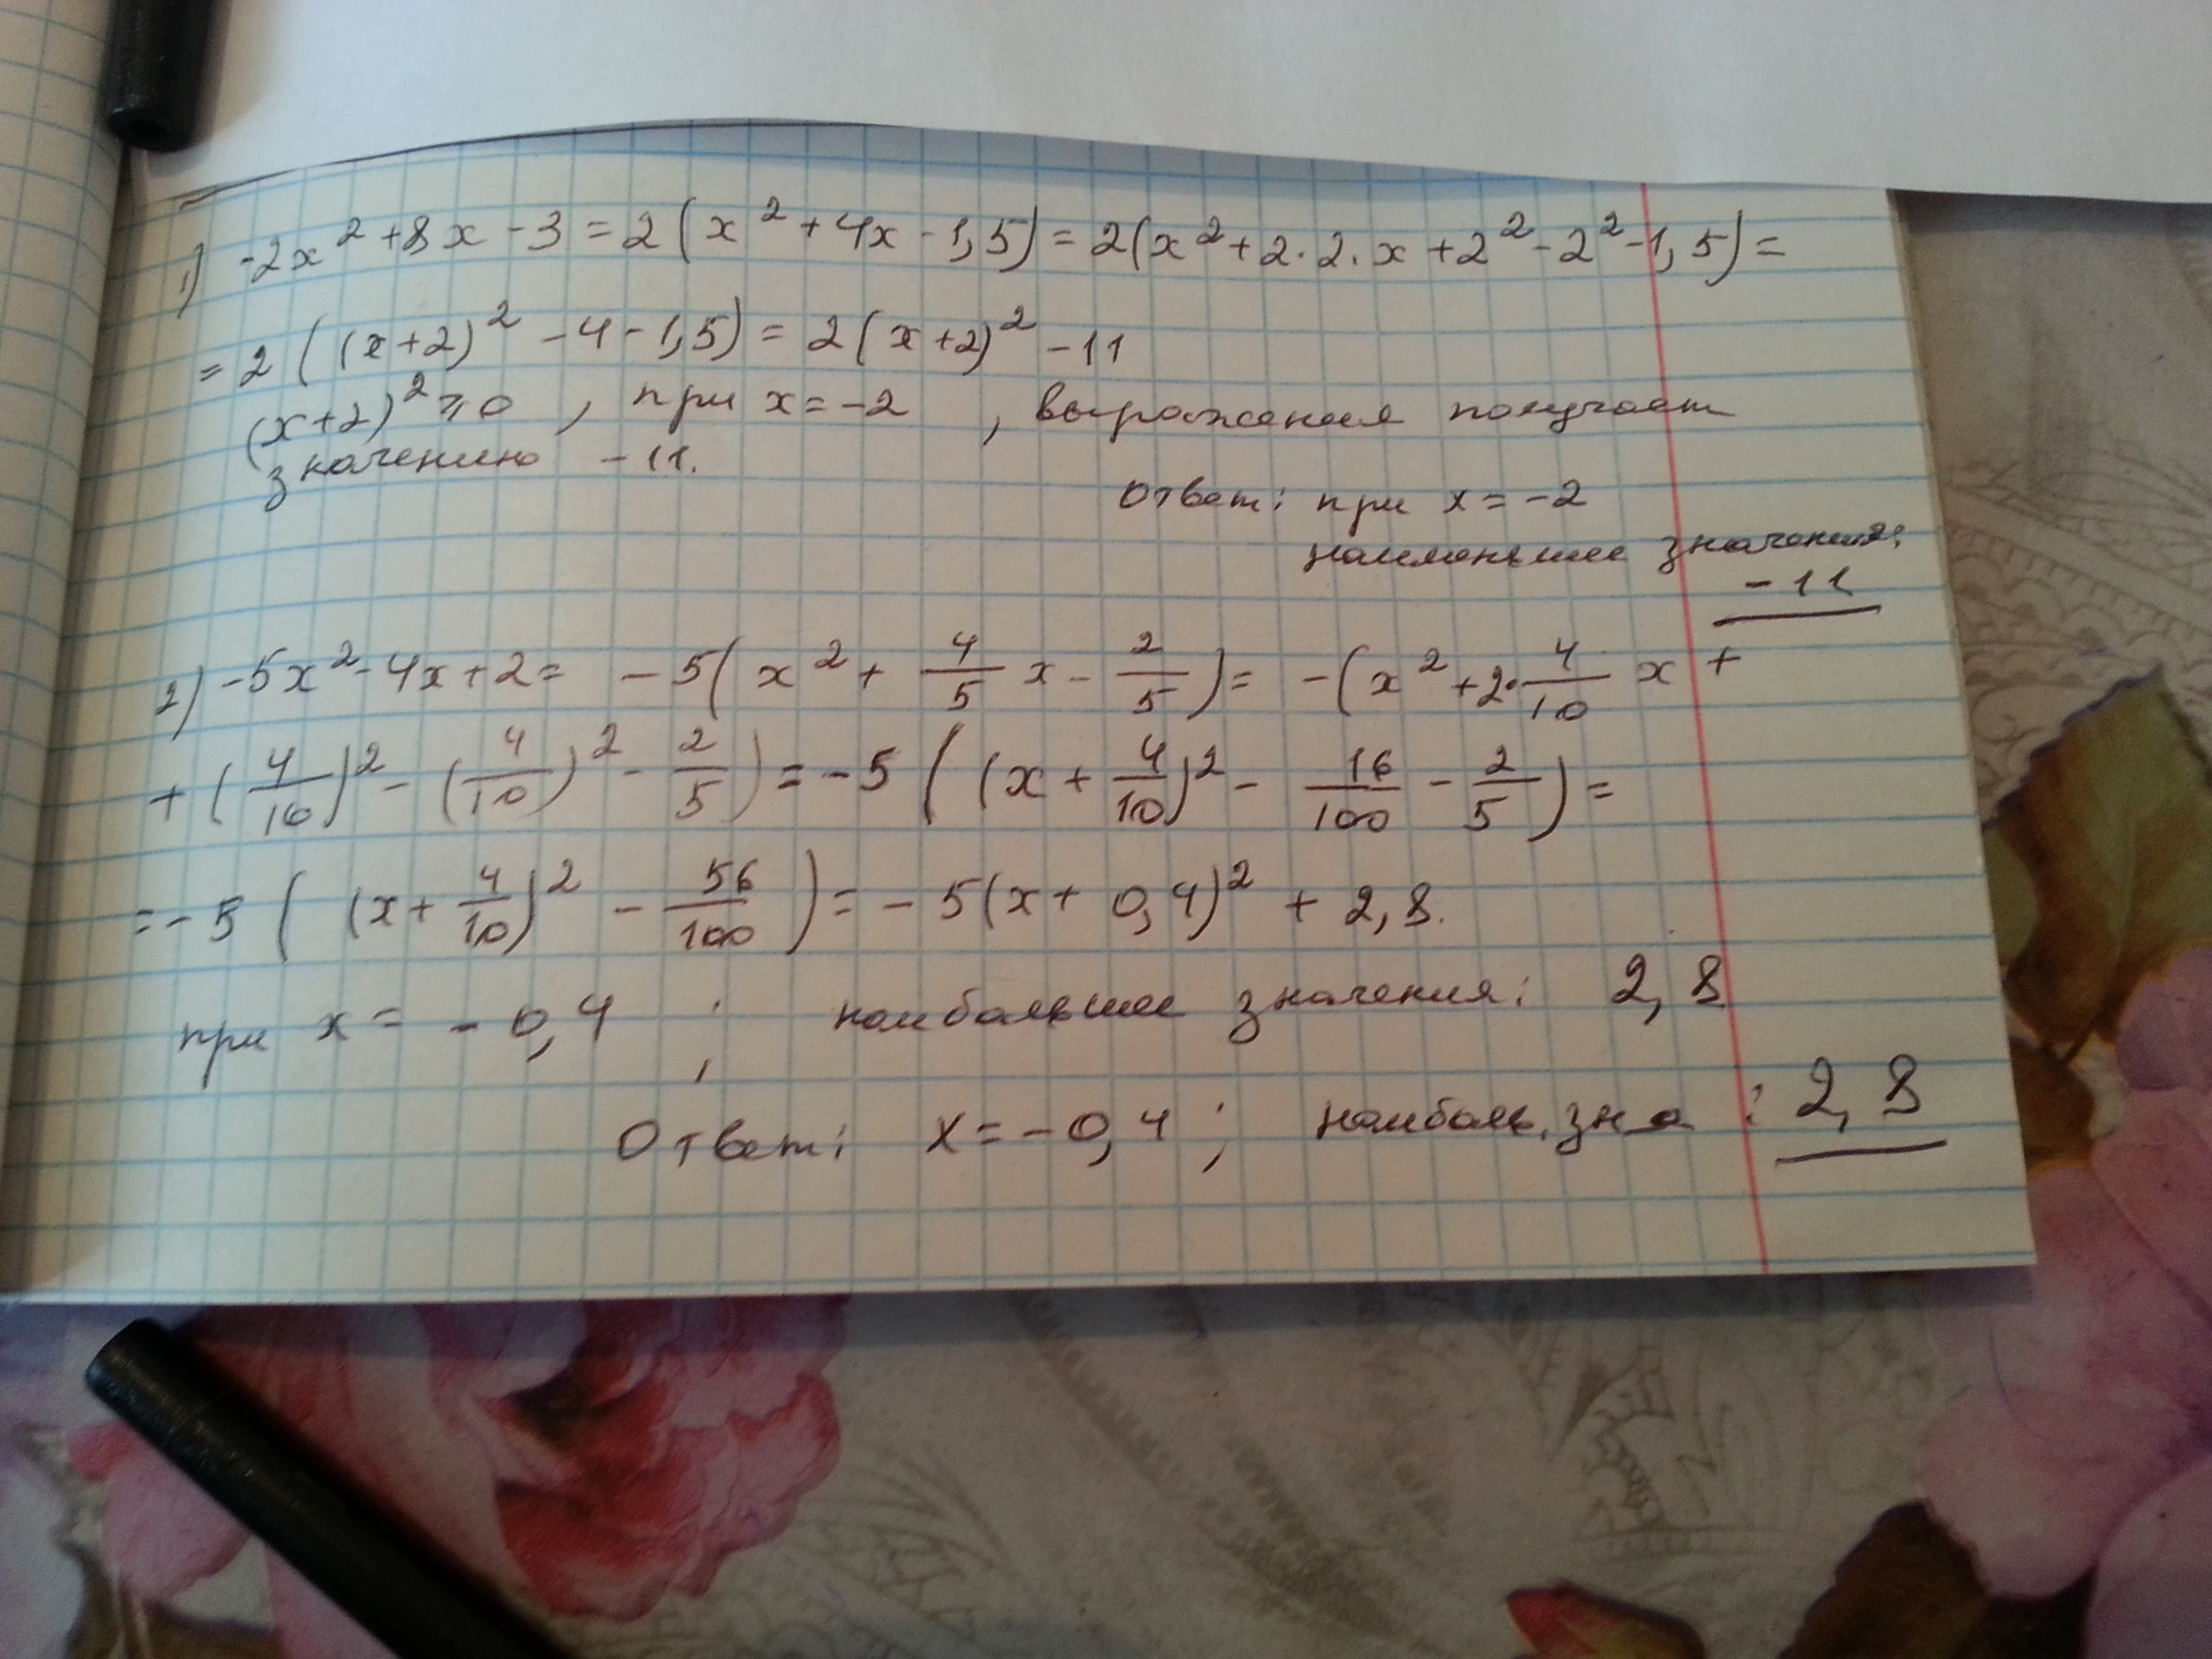 1) -2x² + 8x - 3 = 2(x² + 4x - 1,5) = 2(x² + 2·2·x + 2² - 2² - 1,5) =
= 2((x+2)² - 4 - 1,5) = 2(x+2)² - 11
(x+2)² ⩾ 0, при x = -2, выражения получает
значению -11.
Ответ: при x = -2
наименьшее значения:
-11
2) -5x² - 4x + 2 = -5(x² + 4/5 x - 2/5) = -(x² + 2·4/10 x +
+ (4/10)² - (4/10)² - 2/5) = -5((x + 4/10)² - 16/100 - 2/5) =
= -5((x + 4/10)² - 56/100) = -5(x + 0,4)² + 2,8.
при x = -0,4; наибольшее значения: 2,8
Ответ: x = -0,4; наиболь. зна: 2,8